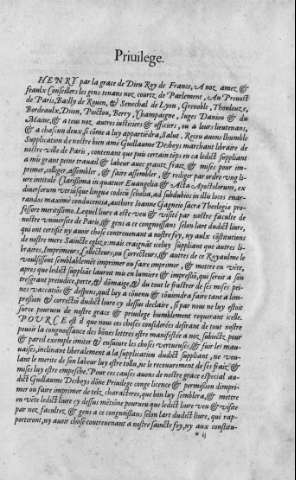 Priuilege.
HENRY par la grace de Dieu Roy de France, A noz amez &
feaulx Conseillers les gens tenans noz courtz de Parlement, Au Preuost
de Paris, Bailly de Rouen, & Seneschal de Lyon, Grenoble, Thoulouze,
Bordeaulx, Dijon, Poictou, Berry, Champaigne, Iuges Daniou & du
Maine, & a tous noz autres iusticiers & officiers, ou a leurs lieutenans,
& a chascun deux si comme a luy appartiendra, Salut. Receu auons lhumble
Supplication de nostre bien ame Guillaume Desboys marchant libraire de
nostre ville de Paris, contenant que puis certain teps en ca ledict suppliant
a mis grant peine trauail & labeur auec grantz fraiz & mises pour im-
primer, rediger assembler, & faire assembler, & rediger par ordre vng li-
ure intitule Clarissima in quatuor Euangelia & Acta Apostolorum, ex
diuersorum
randos maxime conducentia, authore Ioanne Gagneio sacra Theologia pro-
fessore meritissimo. Lequel liure a este veu & visite par nostre faculte de
nostre vniuersite de Paris, & gens a ce congnoissans selon lart dudict liure,
qui ont certifie ny auoir chose contreuenant a nostre foy, ny aulx constitutions
de nostre mere Saincte eglize: mais craignãt
braires, Imprimeurs, & autres de ce Royaulme le
voulsissent semblablement imprimer ou faire imprimer, & mettre en vēte,
apres que ledict suppliãt lauroit mis en lumiere & impressiõ, qui seroit a sa
tresgrant preiudice, perte, & dõmaige, & du tout le frustrer de ses mises pei-
nes & despens,
pression & correctiõ dudict liure cy dessus declaire, si par nous ne luy estoit
surce pourueu de nostre grace & priuilege humblement requerant icelle.
POVRCE est
pouoir la congnoissance des bonnes lettres estre manifestee a noz subiectz, pour
& pareil exemple imiter & ensuiure les choses vertueuses, & fuir les mau-
uaises, inclinans liberalement a la supplication dudict suppliant, ne vou-
lant le merite de son labeur luy estre tollu, ne le recouurement de ses fraiz &
mises luy estre empesche. Pour ces causes auons de nostre grace especial au-
dict Guillaume Desboys dõne Priuilege conge licence & permission dimpri-
mer ou faire imprimer de telz, charactheres, que bon luy semblera, & mettre
en vēte ledict liure cy dessus mētionne pourueu que ledict liure veu & visite
par noz facultez, & gens a ce congnoissans selon lart dudict liure, qui rap-
porteront, ny auoir chose contreuenant a nostre saincte foy, ny aux constitu-
* ij